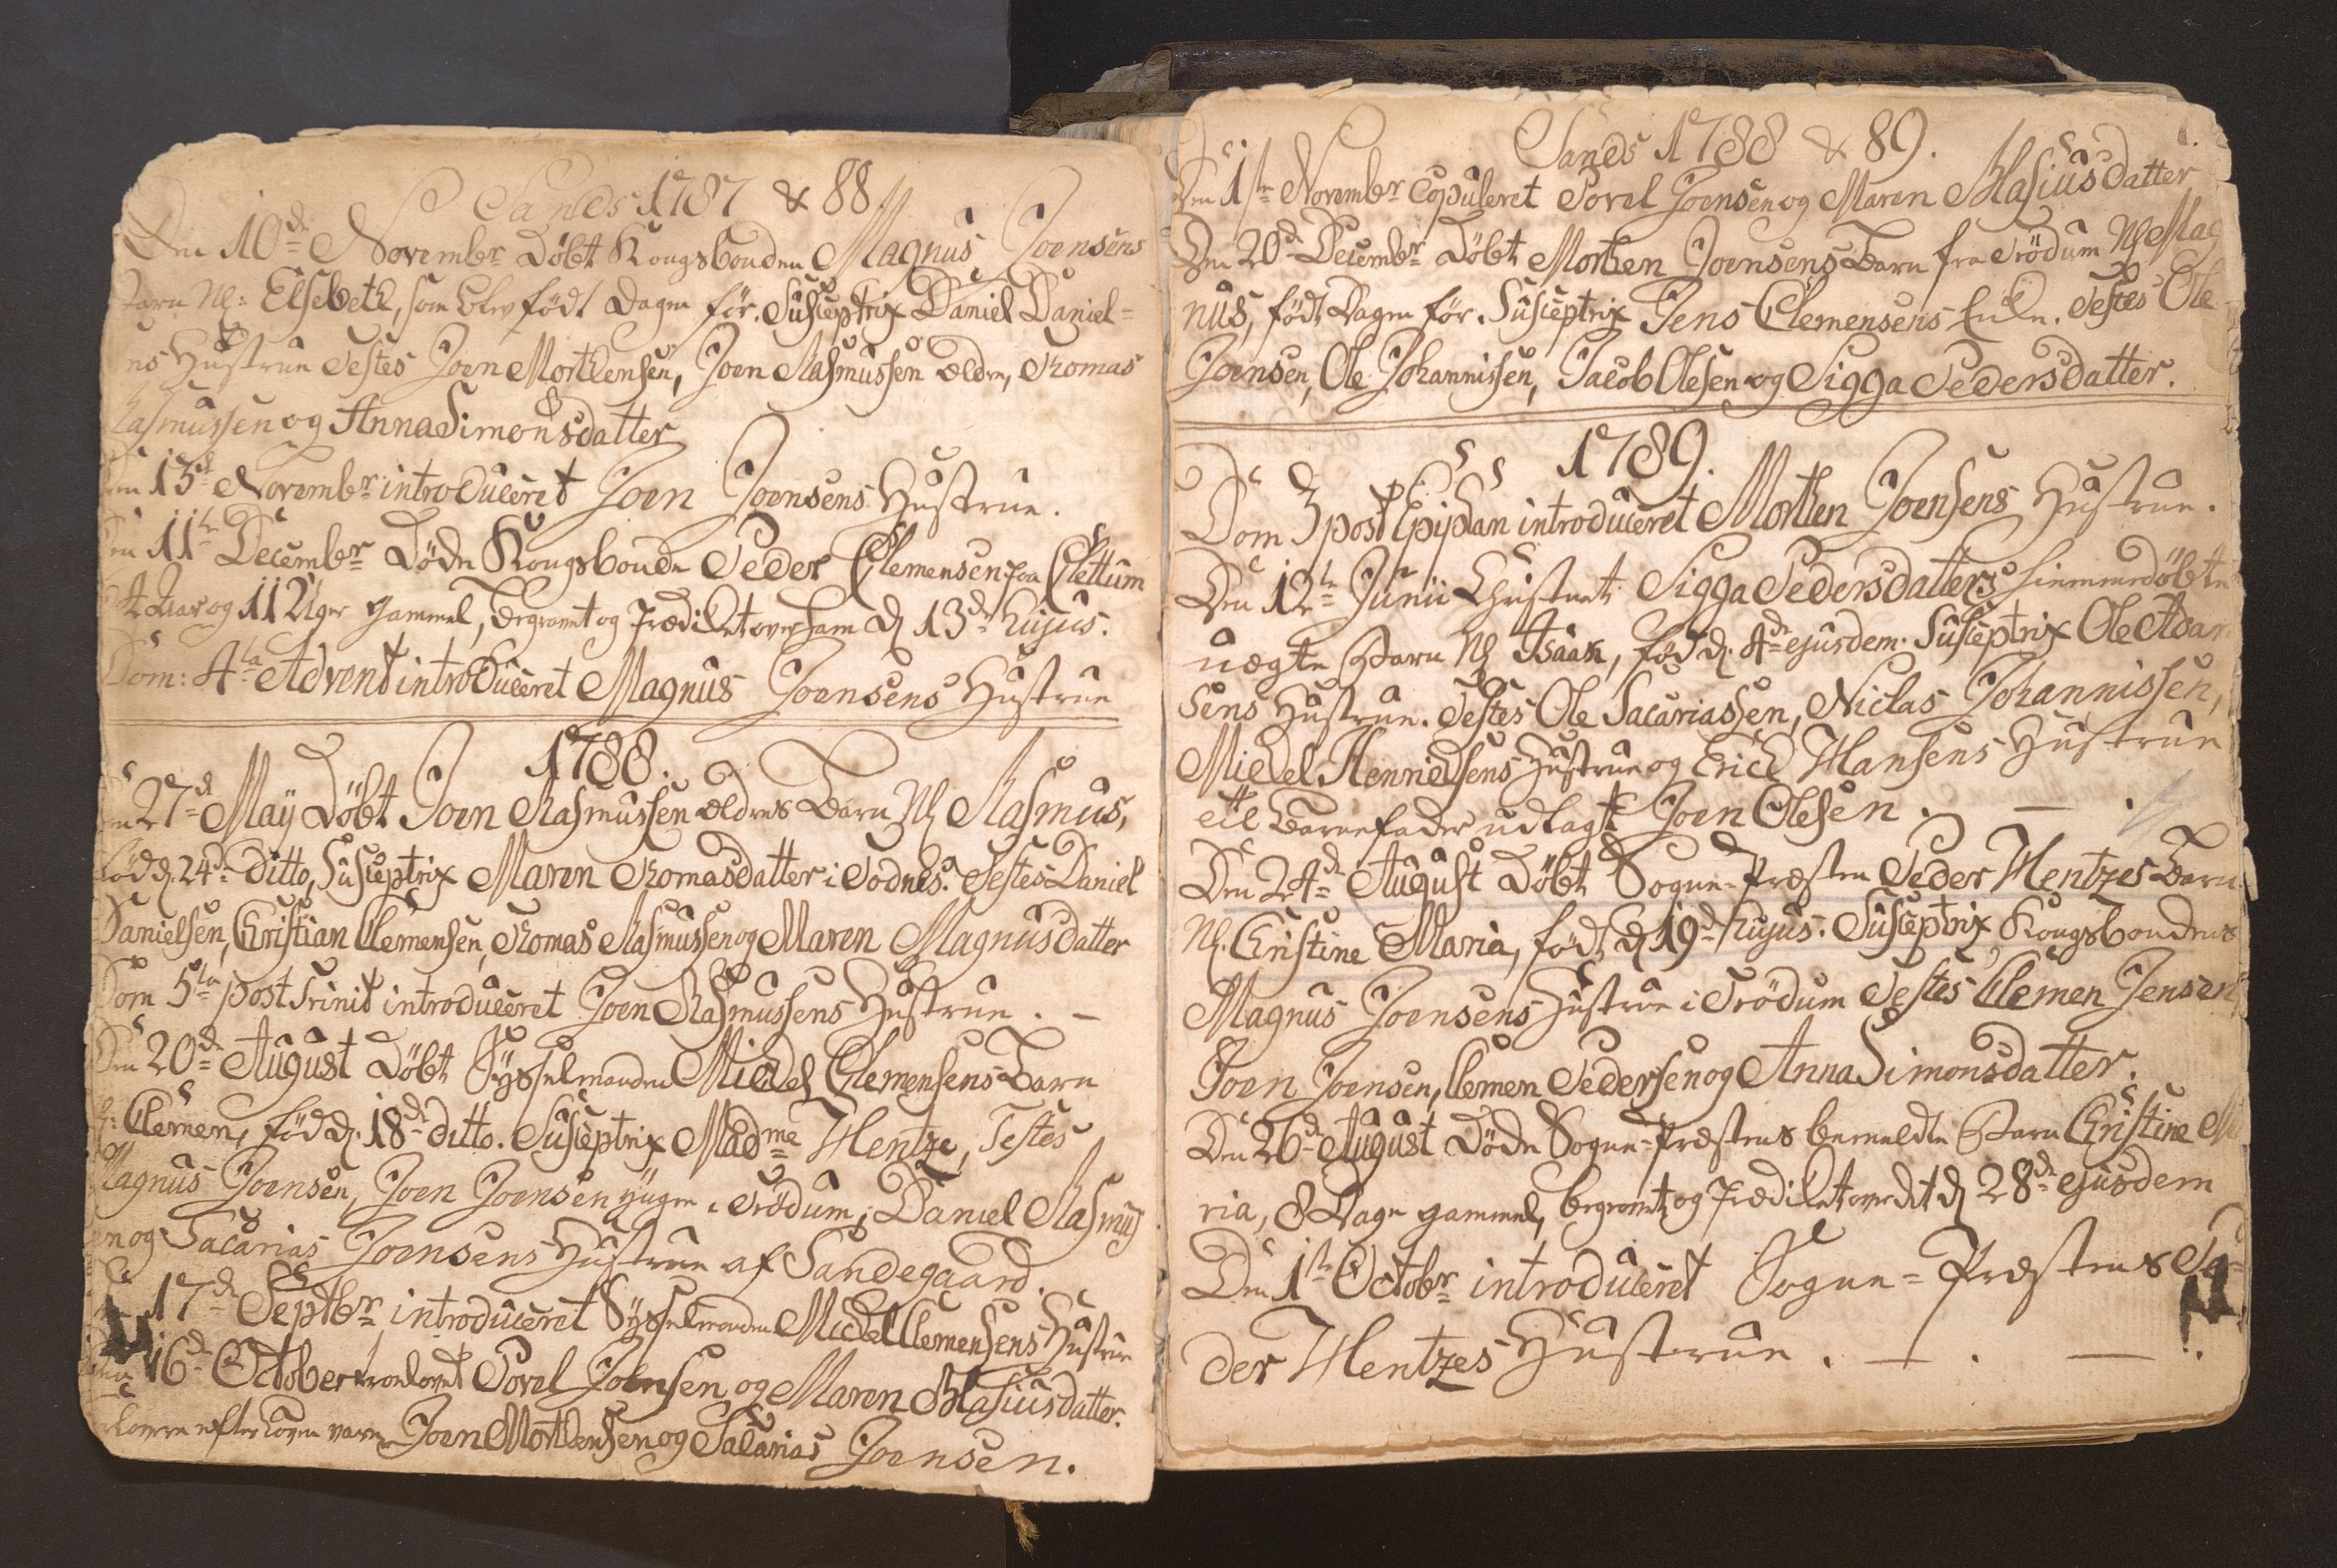 Sands 1787 & 88.
Den 10de Novembr Döbt Kongsbonden Magnus Joensens
Barn Nl: Elsebeth, som blev födt Dagen för. Susceptrix Daniel Daniel-
ns Hustrue Testes Joen Morthensen, Joen Rasmussen ældre, Thomas
Rasmussen og Anna Simonsdatter
Den 13de Novembr introduceret Joen Joensens Hustrue.
Den 11te Decembr Döde Kongsbonde Peder Clemensen paa Clettum
Aar og 11 Uger gammel, begravet og Prædiket over ham d. 13de hujus.
Dom: 4ta Advent introduceret Magnus Joensens Hustrue
1788.
Den 27de Maÿ Döbt Joen Rasmussen ældres Barn Nl Rasmus,
föd d. 24de ditto, Susceptrix Maren Thomasdatter i Todnes. Testes Daniel
Danielsen, Christian Clemensen, Thomas Rasmussen og Maren Magnusdatter
Dom 5ta post Trinit introduceret Joen Rasmussens Hustrue. –
Den 20de August Döbt Sÿsselmanden Michel Clemensens Barn
Nl: Clemen, föd d. 18de ditto. Susceptrix Madme Hentze, Testes
Magnus Joensen, Joen Joensen ÿngre i Trödum, Daniel Rasmus
en og Sacarias Joensens Hustrue af Sandegaard.
Den 17de Septbr introduceret Sÿsselmanden Michel Clemensens Hustrue
Den 16de October trolovet Povel Joensen og Maren Blasiusdatter.
Forlovere efter Loven vare Joen Morthensen og Sacarias Joensen.
Sands 1788 & 89.
Den 1ste Novembr Copuleret Povel Joensen og Maren Blasiusdatter
Den 20de Decembr Döbt Morthen Joensens Barn fra Trödum Nl Mag
nus, födt Dagen för. Susceptrix Jens Clemensens Enke. Testes Ole
Joensen, Ole Johannissen, Jacob Olesen og Sigga Pedersdatter.
1789.
Dom 3 post Epiphan introduceret Morthen Joensens Hustrue.
Den 12te Junii Christnet Sigga Pedersdatters hiemmedöbte
uægte Barn Nl Isaak, föd d. 4de ejusdem. Susceptrix Ole Adam
sens Hustrue. Testes Ole Sacariassen, Niclas Johannissen,
Michel Henrichsens Hustrue og Erich Hansens Hustrue
til Barnefader udlagt Joen Olesen. —
Den 24de August Döbt Sogne-Præsten Peder Hentzes Barn
Nl. Christine Maria, födt d. 19de hujus. Susceptrix Kongsbondens
Magnus Joensens Hustrue i Trödum Testes Clemen Jensen
Joen Joensen, Clemen Pedersen og Anna Simonsdatter.
Den 26de August Döde Sogne-Præstens bemeldte Barn Christine Ma
ria, 8 Dage gammel, begravet og Prædiket over det d. 28de ejusdem
Den 1ste Octobr introduceret Sogne-Præstens Pe-
der Hentzes Hustrue. — . — .